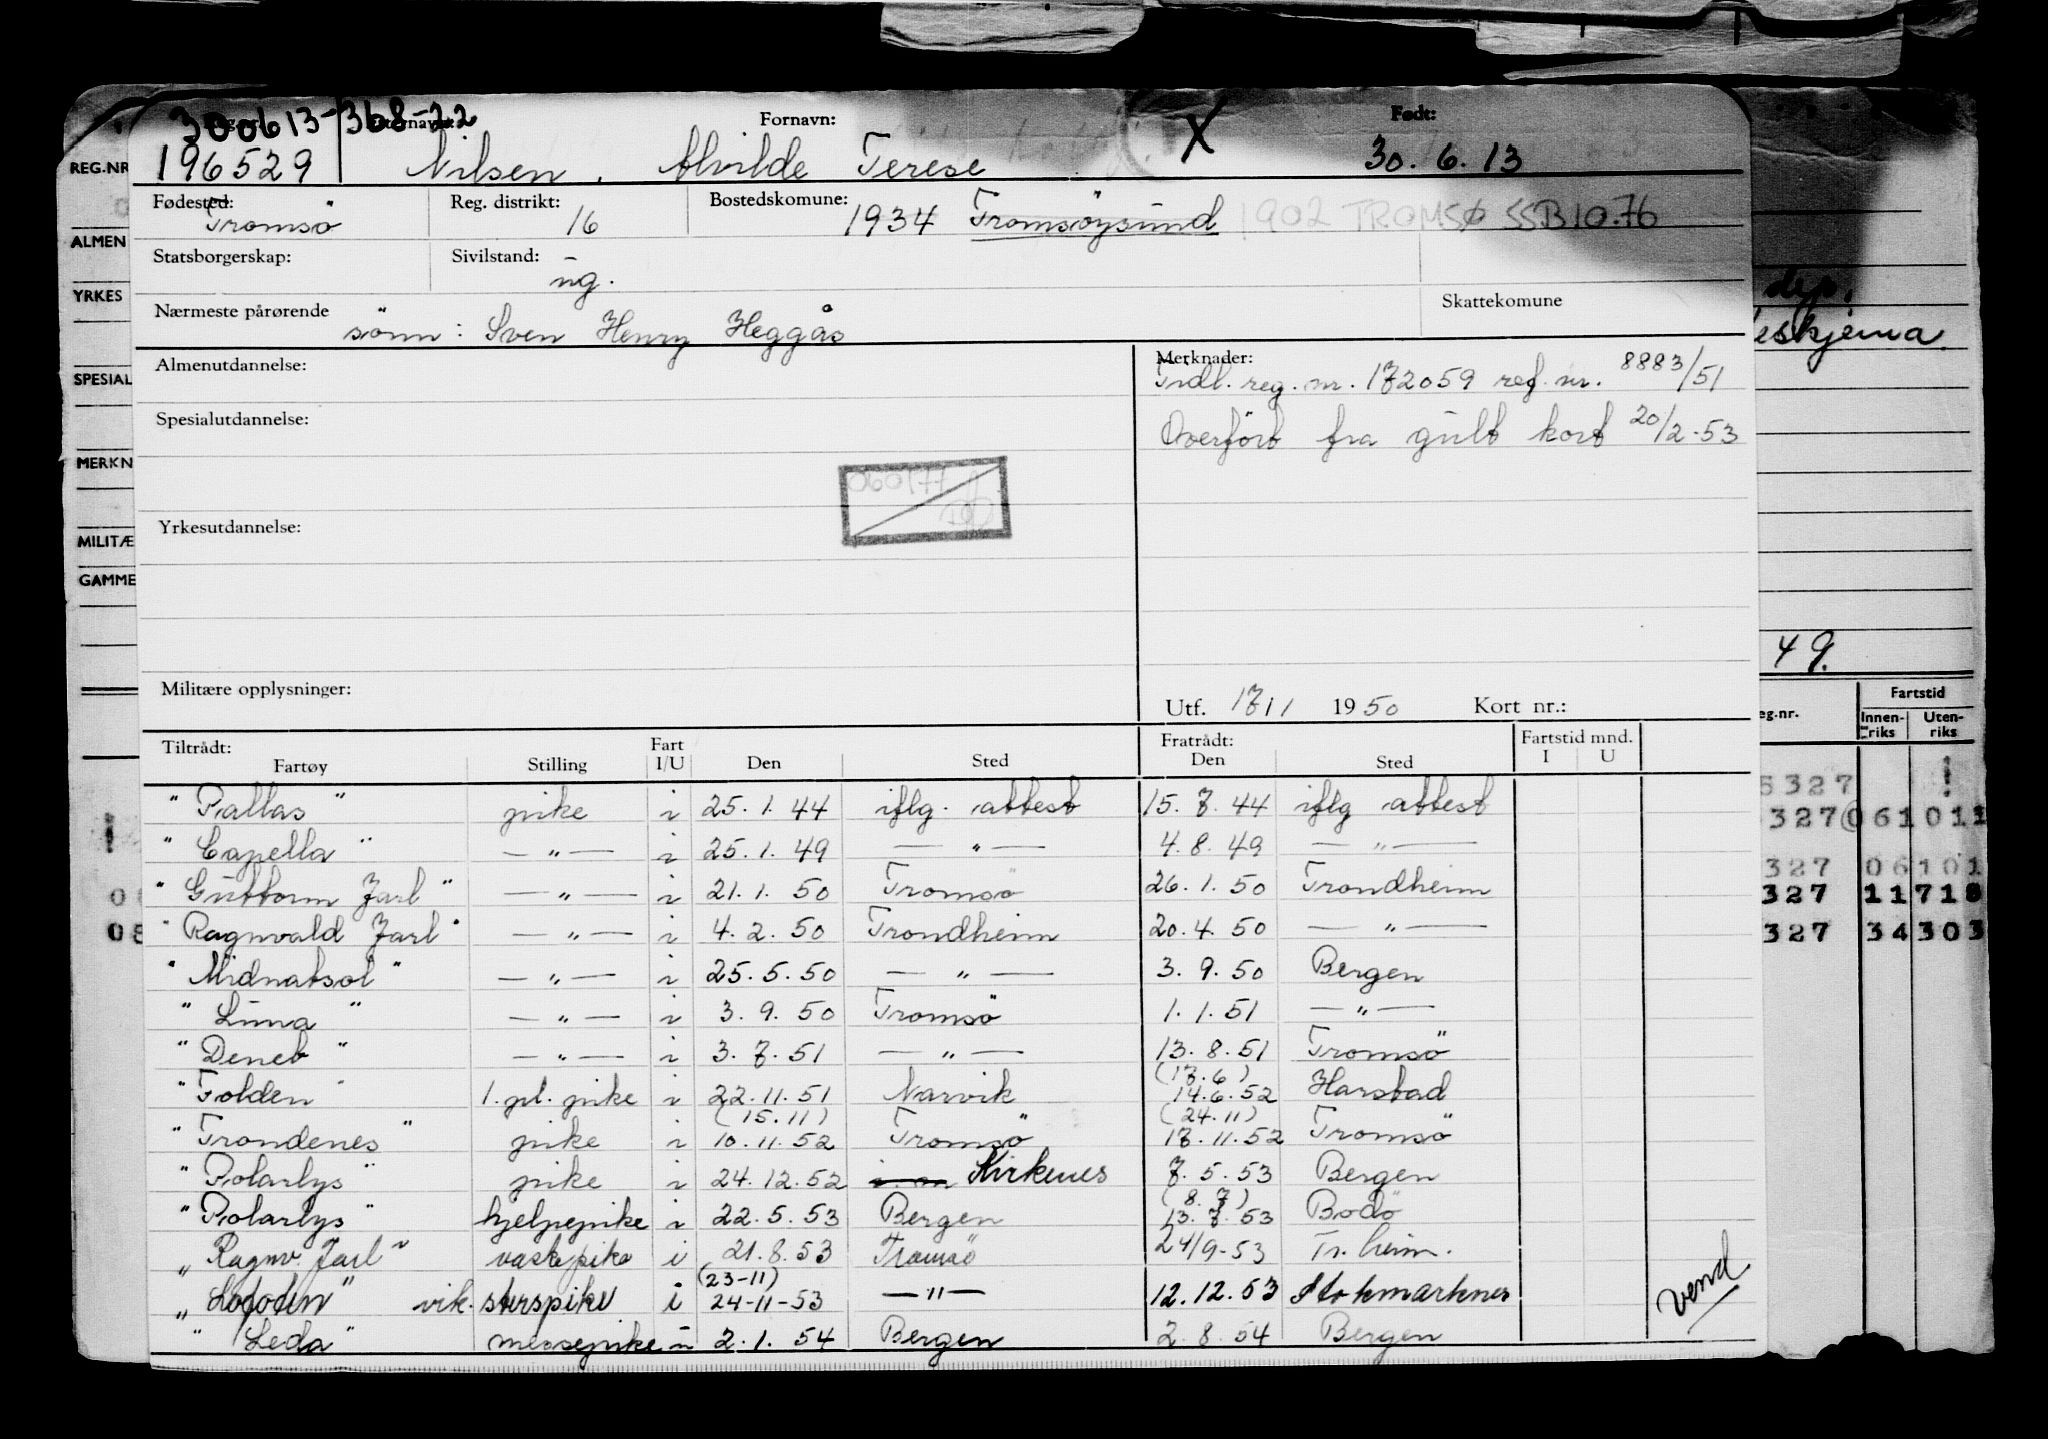 300613-368-22
Fornavn: X Født:
REG.NR 196529 Nilsen, Alvilde Terese 30.6.13
Fødested: Tromsö Reg. distrikt: 16 Bostedskomune: 1934 Tromsöysund 1902 TROMSØ SSB 10.76
ALMEN Statsborgerskap: Sivilstand: ug.
YRKES Nærmeste pårørende sönn: Sven Henry Heggås Skattekomune dep.
eskjema
Almenutdannelse: Merknader:
SPESIAL Tidl. reg. nr. 172059 ref. nr. 8883/51
Spesialutdannelse: Overfört fra gult kort 20/2-53
MERKN
060177
Yrkesutdannelse:
MILITÆ
GAMME
49.
Militære opplysninger: Utf. 17/1 1950 Kort nr.:
Fartstid
eg.nr. Innenriks Utenriks
Tiltrådt: Fart Fratrådt: Fartstid mnd.
Fartøy Stilling I/U Den Sted Den Sted I U
"Pallas" pike i 25.1.44 iflg. attest 15.7.44 iflg attest 5327 !
! "Capella" — " — i 25.1.49 — " — 4.8.49 — " — 327 061 011
"Guttorm Jarl" — " — i 21.1.50 Tromsö 26.1.50 Trondheim 327 06 101
08 "Ragnvald Jarl" — " — i 4.2.50 Trondheim 20.4.50 — " — 327 11 718
"Midnatsol" — " — i 25.5.50 — " — 3.9.50 Bergen 327 34 303
"Luna" — " — i 3.9.50 Tromsö 1.1.51 — " —
"Deneb" — " — i 3.7.51 — " — 13.8.51 Tromsö
"Folden" 1. pl. pike i 22.11.51 Narvik (17.6) 14.6.52 Harstad
"Trondenes" pike i (15.11) 10.11.52 Tromsö (24.11) 17.11.52 Tromsö
"Polarlys" pike i 24.12.52 Kirkenes 7.5.53 Bergen
"Polarlys" hjelpepike i 22.5.53 Bergen (8.7) 13.7.53 Bodö
"Ragnv. Jarl" vaskepike i 21.8.53 Tromsö 24/9-53 Tr.heim.
"Lofoten" vik. storspike i (23-11) 24-11-53 — " — 12.12.53 Stokmarknes
"Leda" messepike u 2.1.54 Bergen 2.8.54 Bergen
vend